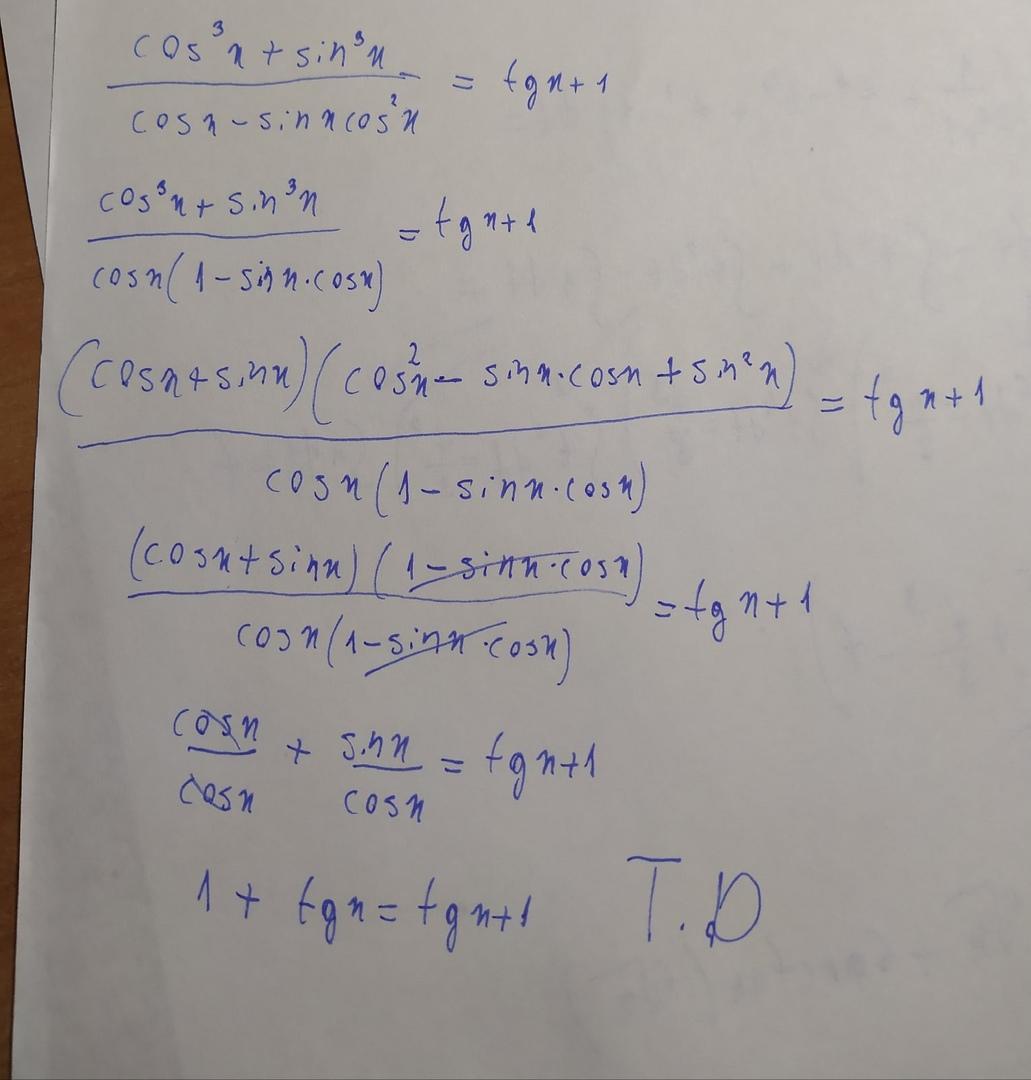 cos³x + sin³x / cosx - sinxcos²x = tgx+1
cos³x + sin³x / cosx(1 - sinx·cosx) = tgx+1
(cosx+sinx)(cos²x - sinx·cosx + sin²x) / cosx(1 - sinx·cosx) = tgx+1
(cosx+sinx)(1-sinx·cosx) / cosx(1-sinx·cosx) = tgx+1
cosx / cosx + sinx / cosx = tgx+1
1 + tgx = tgx+1 T.D